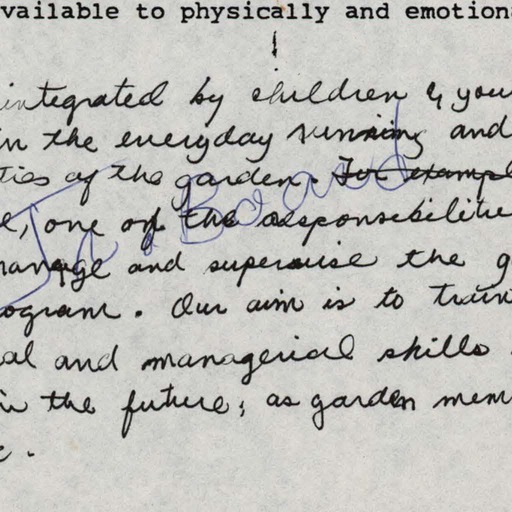 vailable to physically and emotion
integrated by children & you
in the everyday running and
ties of the garden. For exampl
e, one of the responsibilitie
manage and supervise the g
ogram. Our aim is to train
al and managerial skills
in the future, as garden mem